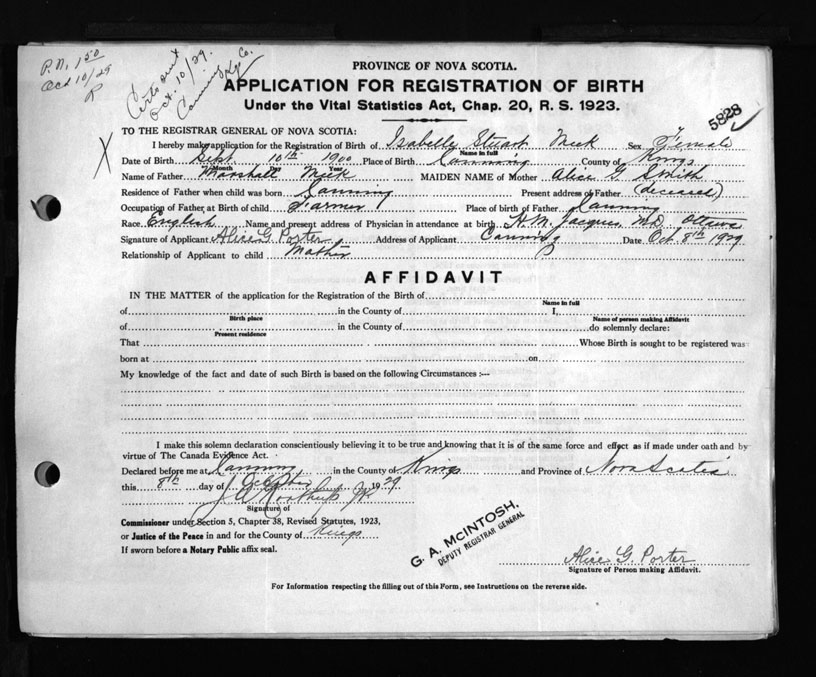 P.N. 1 50
Oct 10/29
R
Certs out
Oct. 10/29.
Canning Kgs Co.
5828
PROVINCE OF NOVA SCOTIA.
APPLICATION FOR REGISTRATION OF BIRTH
Under the Vital Statistics Act, Chap. 20, R. S. 1923.
TO THE REGISTRAR GENERAL OF NOVA SCOTIA:
I hereby make application for the Registration of Birth of Isabelly Stuart Meek Sex Female
Name in full
Date of Birth Sept. 10th 1900 Place of Birth Canning County of Kings
Month Day Year
Name of Father Marshall Meek MAIDEN NAME of Mother Alice G Smith
Residence of Father when child was born Canning Present address of Father (deceased)
Occupation of Father at Birth of child Farmer Place of birth of Father Canning
Race English Name and present address of Physician in attendance at birth H. N. Jacques, M.D. Ottawa
Signature of Applicant Alice G. Porter Address of Applicant Canning Date Oct. 8th 1929
Relationship of Applicant to child Mother
AFFIDAVIT
IN THE MATTER of the application for the Registration of the Birth of
Name in full
of in the County of I,
Birth place Name of person making Affidavit
of in the County of do solemnly declare:
Present residence
That Whose Birth is sought to be registered was
born at on
My knowledge of the fact and date of such Birth is based on the following Circumstances :—
I make this solemn declaration conscientiously believing it to be true and knowing that it is of the same force and effect as if made under oath and by
virtue of The Canada Evidence Act.
Declared before me at Canning in the County of Kings and Province of Nova Scotia
this 8th day of October 1929
Signature of
Commissioner under Section 5, Chapter 38, Revised Statutes, 1923,
or Justice of the Peace in and for the County of Kings
If sworn before a Notary Public affix seal.
G. A. McINTOSH,
DEPUTY REGISTRAR GENERAL
Alice G. Porter
Signature of Person making Affidavit.
For Information respecting the filling out of this Form, see Instructions on the reverse side.